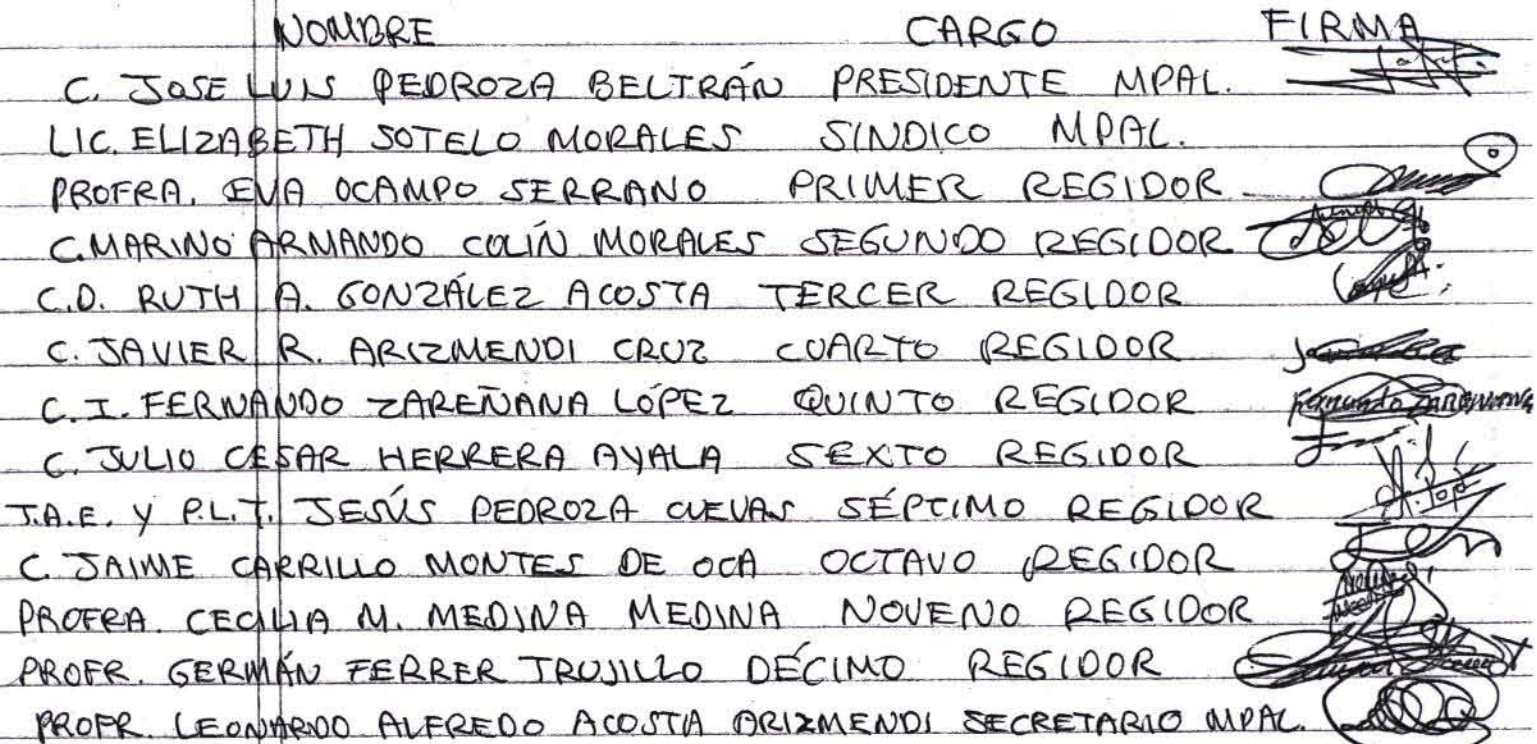 NOMBRE CARGO FIRMA
C. JOSE LUIS PEDROZA BELTRÁN PRESIDENTE MPAL.
LIC. ELIZABETH SOTELO MORALES SINDICO MPAL.
PROFRA. EVA OCAMPO SERRANO PRIMER REGIDOR
C. MARINO ARMANDO COLÍN MORALES SEGUNDO REGIDOR
C.D. RUTH A. GONZÁLEZ ACOSTA TERCER REGIDOR
C. JAVIER R. ARIZMENDI CRUZ CUARTO REGIDOR
C. I. FERNANDO ZAREÑANA LÓPEZ QUINTO REGIDOR
C. JULIO CESAR HERRERA AYALA SEXTO REGIDOR
T.A.E. Y P.L.T. JESÚS PEDROZA CUEVAS SÉPTIMO REGIDOR
C. JAIME CARRILLO MONTES DE OCA OCTAVO REGIDOR
PROFRA. CECILIA M. MEDINA MEDINA NOVENO REGIDOR
PROFR. GERMÁN FERRER TRUJILLO DÉCIMO REGIDOR
PROFR. LEONARDO ALFREDO ACOSTA ARIZMENDI SECRETARIO MPAL.